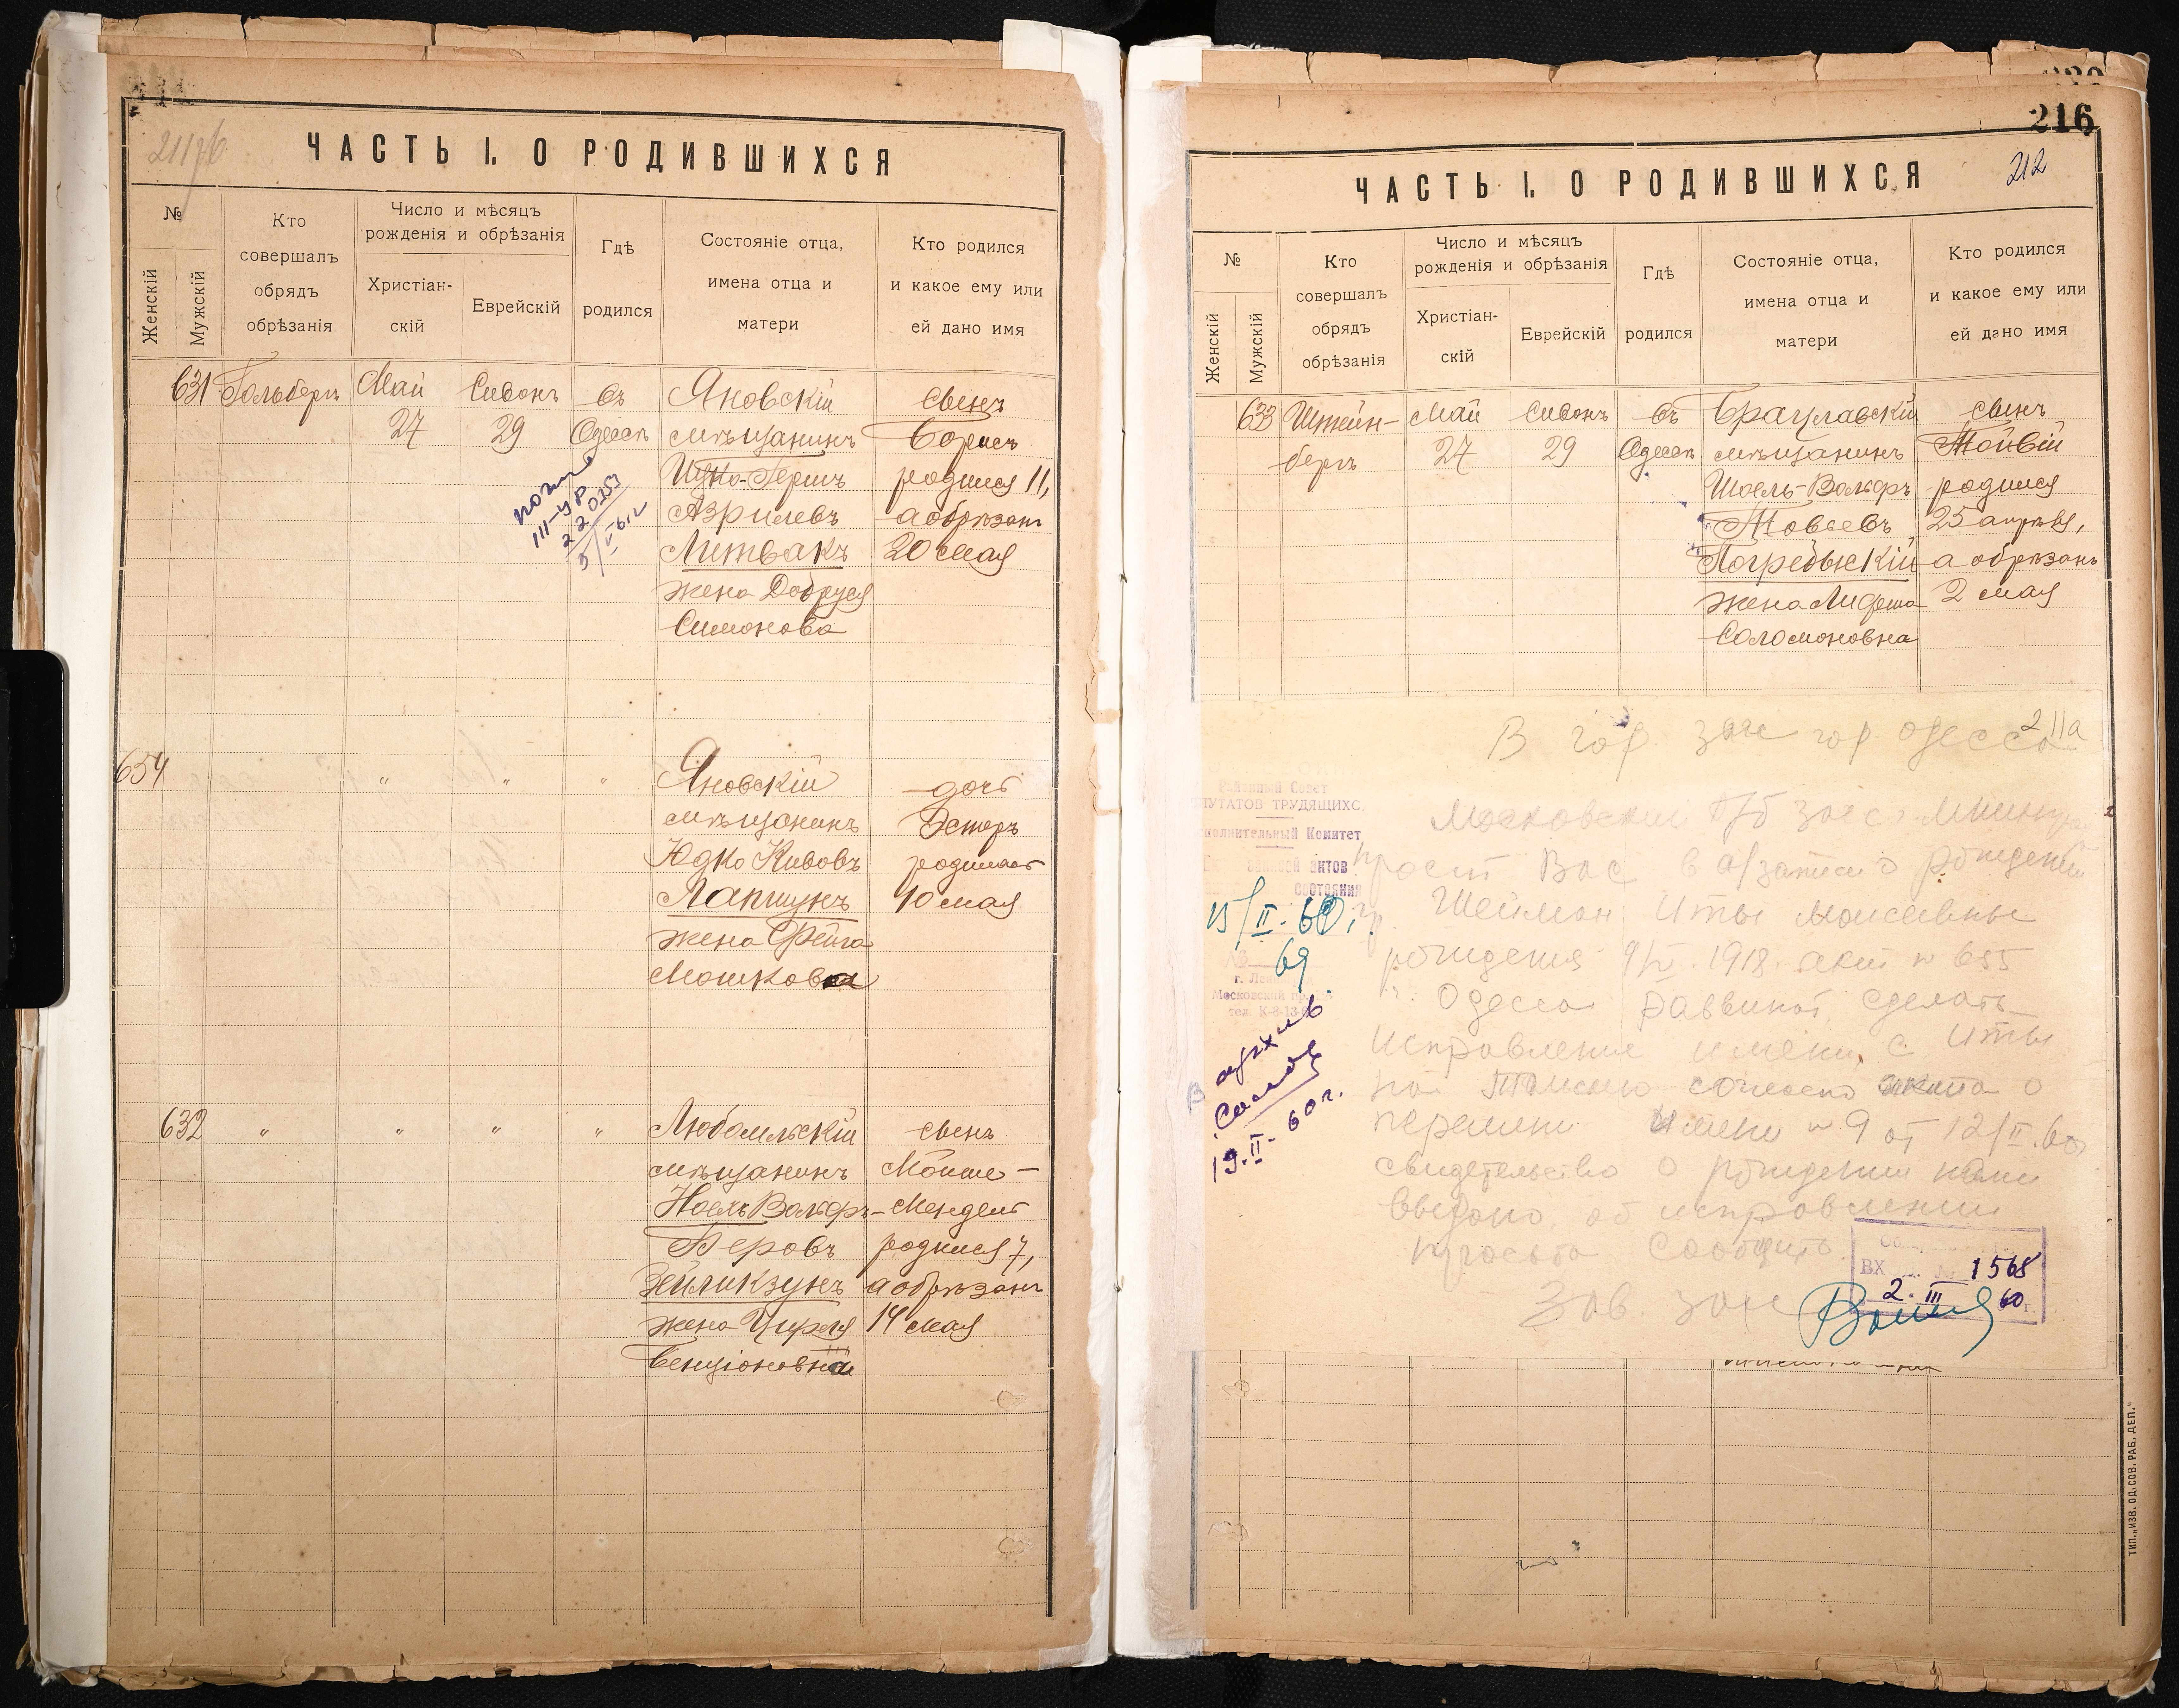 211 об
ЧАСТЬ I. О РОДИВШИХСЯ
№
Женскій
Мужскій
Кто совершалъ обрядъ обрѣзанія
Число и мѣсяцъ рожденія и обрѣзанія
Христіан-скій
Еврейскій
Гдѣ родился
Состояніе отца, имена отца и матери
Кто родился и какое ему или ей дано имя
631 Гольберъ Май Сивонъ въ Яновскій сынъ
27 29 Одессѣ мѣщанинъ Борисъ
Ицко-Гершъ родился 11,
Азрилевъ а обрѣзанъ
Литвакъ 20 мая
жена Добруся
Симонова
III-УР
5/II-61г
654 " " " Яновскій дочь
мѣщанинъ Эстеръ
Юдко Кивовъ родилась
Лапшунъ 10 мая
жена Фейга
Мошкова
632 " " " " Любомльскій сынъ
мѣщанинъ Мойше-
Ноель Вольфъ-Мендель
Беровъ родился 7,
Зейликзунъ а обрѣзанъ
жена Цирля 14 мая
Бенціоновна
216
212
ЧАСТЬ I. О РОДИВШИХСЯ
№
Женскій
Мужскій
Кто совершалъ обрядъ обрѣзанія
Число и мѣсяцъ рожденія и обрѣзанія
Христіан-скій
Еврейскій
Гдѣ родился
Состояніе отца, имена отца и матери
Кто родился и какое ему или ей дано имя
633 Штейн- Май Сивонъ въ Брацлавскій сынъ
бергъ 27 29 Одессѣ мѣщанинъ Тойвій
Шоель-Вольфъ родился
Товьевъ 25 апрѣля,
Погребыскій а обрѣзанъ
жена 2 мая
Соломоновна
211а
В гор загс гор Одесса
Районный Совет
ДЕПУТАТОВ ТРУДЯЩИХСЯ
Исполнительный Комитет
актов
состояния
15/II-60г.
69
Московский
тел. К-8-13
В архив
19.II-60г.
Московский р/б загс
просит Вас в а/записи о рождении
гр. Шейман Иты Моисеевны
рождения 1918 акт № 655
г. Одесса Раввинат, сделать
исправление имени с Иты
на согласно акта о
перемени имени № 9 от 12/II.60
свидетельство о рождении нами
выдано, об исправлении
просьба сообщить.
Зав. загс
ВХ 1568
2. III 60 г.
ТИП. „ИЗВ. ОД. СОВ. РАБ. ДЕП."